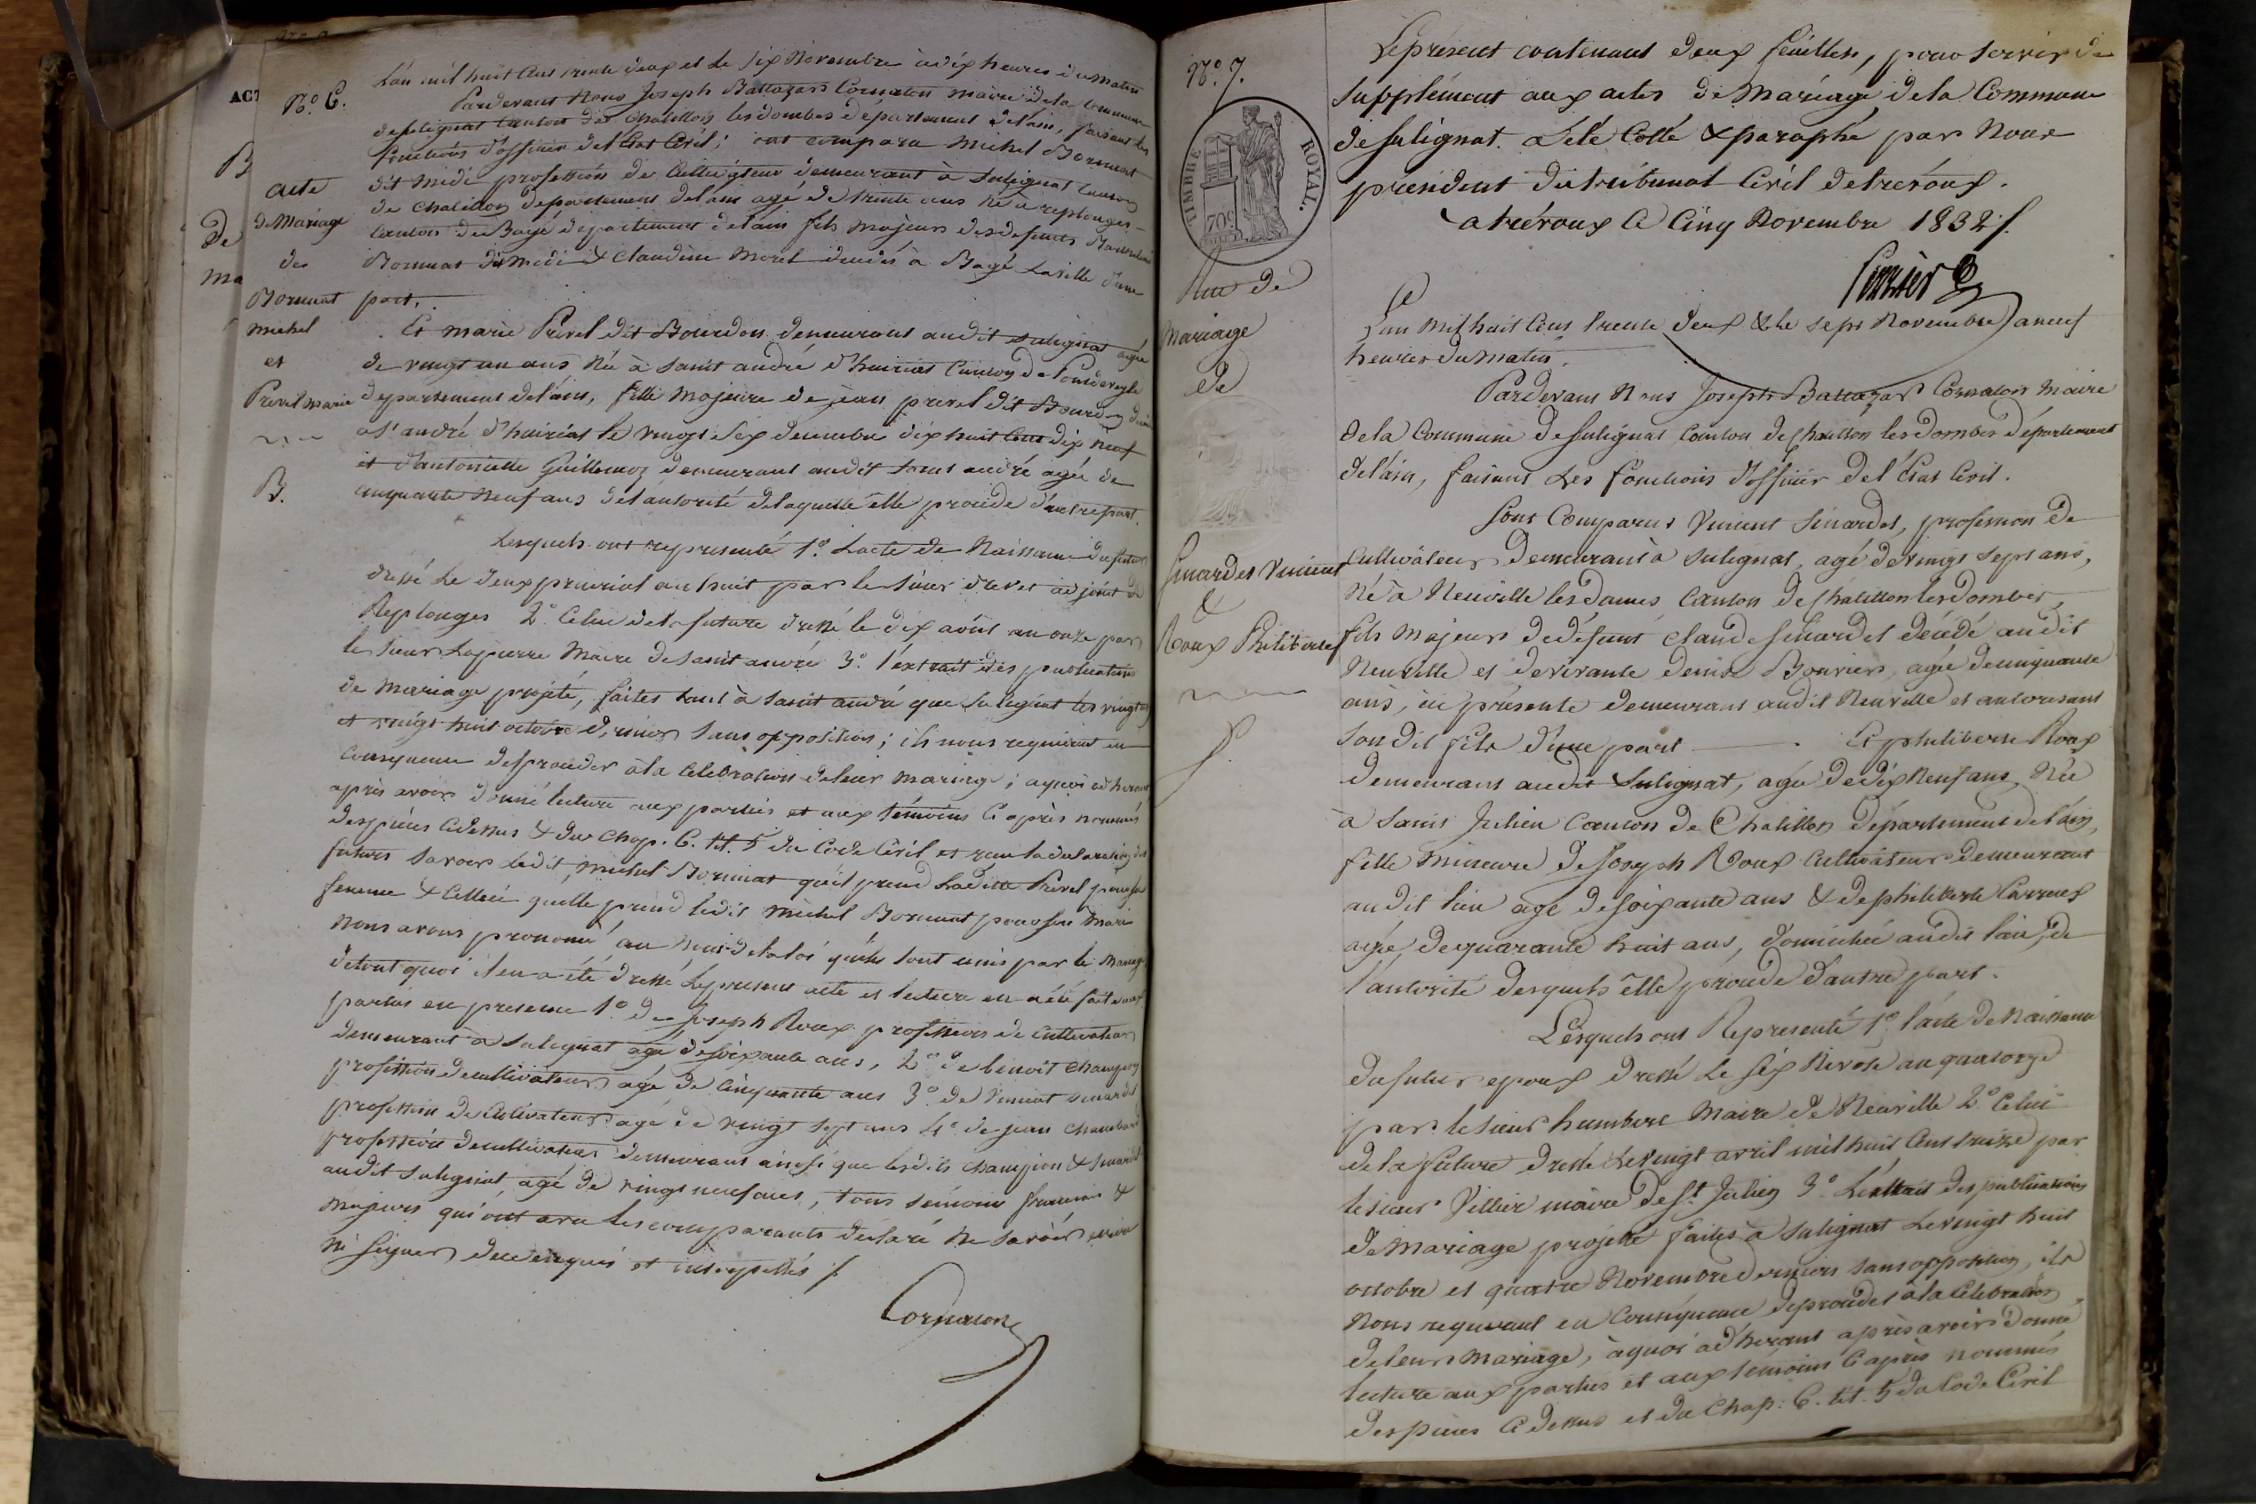 ACT
B
de
ma
N.o 6.
acte
de Mariage
des
Bornuat
michel
et
Prevel marie
B.
L'an mil huit Cens trente deux et le six Novembre à dix heures du matin
Pardevant Nous Joseph Battazar Cornaton maire de la Commune
de Sulignat Canton de Chatillon les dombes département de l'ain, faisant les
fonctions d'officier de l'Etat Civil; ont comparu Michel Bornuat
dit Midi profession de Cultivateur demeurant à Sulignat Canton
de Chatillon département de l'ain agé de trente ans Né à replonges
Canton de Bagé département de l'ain fils majeur des defunts
Bornuat dit Midi & Claudine Morel décédés à Bagé la ville d'une
part.
Et marie Prevel dit Bourdon demeurant audit Sulignat agée
de vingt un ans Née à Saint andré d'huiriat Canton de Pondeveyle
département de l'ain, fille Majeure de jean prevel dit Bourdon
a St andré d'huiriat le vingt six decembre dix huit Cens dix neuf
et d'antoinette Guillemoz demeurant audit Saint andré agée de
cinquante Neuf ans de l'autorité de laquelle elle procède d'autre part.
Lesquels ont representé 1.o L'acte de Naissance du futur
dressé Le deux prairial an huit par le Sieur drevet adjoint de
Replonges 2.o Celui de la future dressé le dix août an onze par
le Sieur Lapierre Maire de Saint andré 3.o l'extrait des publications
de Mariage projeté, faites tant à Saint andré que Sulignat les vingt un
et vingt huit octobre dernier Sans opposition; ils nous requierent en
Consequence de proceder à la Celebration de leur Mariage; a quoi adherant
après avoir donné lecture aux parties et aux témoins Ci après nommés
des pièces Cidessus & du Chap. 6. tit. 5 du Code Civil et recu la declaration des
futurs Savoir Ledit, Michel Bornuat qu'il prend Ladite Prevel pour sa
femme & Celleci qu'elle prend ledit Michel Bornuat pour son Mari
Nous avons prononcé au Nom de la loi qu'ils sont unis par le Mariage
de tout quoi il en a été dressé Le present acte et lecture en a été faite aux
parties en presence 1.o de Joseph Roux profession de Cultivateur
demeurant à Sulignat agé de soixante ans, 2.o de benoit Champion
profession de cultivateur agé de Cinquante ans 3.o de Vincent Sinardet
profession de Cultivateur agé de vingt sept ans 4.o de jean Chambard
profession de cultivateur demeurant ainsi que lesdits Champion & Sinardet
audit Sulignat agé de vingt neuf ans, tous témoins français &
majeurs qui ont avec les comparants declaré Ne Savoir écrire
Ni signer de ce enquis et interpellés /.
Cornaton
N.o 7.
TIMBRE ROYAL.
70c
Acte de
Mariage
de
Sinardet Vincent
&
Roux Philiberte
Le présent contenant deux feuilles, pour servir de
Supplément aux actes de Mariage de la Commune
de Sulignat. a été Cotté & paraphé par Nous
président du tribunal Civil de trévoux.
a trévoux le Cinq Novembre 1832 /.
L'an Mil huit Cens trente deux & le sept Novembre a neuf
heures du matin.
Pardevant Nous Joseph Battazar Cornaton Maire
de la Commune de Sulignat Canton de Chatillon les dombes département
de l'ain, faisant Les fonctions d'officier de l'Etat Civil.
Sont Comparus Vincent Sinardet, profession de
Cultivateur demeurant à Sulignat, agé de vingt sept ans,
Né à Neuville les dames Canton de Chatillon les dombes,
fils Majeur de défunt Claude Sinardet décédé audit
Neuville et de vivante denise Bouvier, agée de cinquante
ans, ici présente demeurant audit Neuville et autorisant
Son dit fils d'une part. Et philiberte Roux
demeurant audit Sulignat, agée de dix Neuf ans, Née
à Saint Julien Canton de Chatillon département de l'ain,
fille mineure de Joseph Roux Cultivateur demeurant
audit lieu agé de soixante ans & de philiberte Carruet
agée de quarante huit ans, domiciliée audit lieu, de
l'autorité desquels elle procède d'autre part.
Lesquels ont Representé 1.o l'acte de Naissance
du futur epoux dressé Le six Nivose an quatorze
par le sieur humbert Maire de Neuville 2.o Celui
de la future dressé Le vingt avril mil huit Cens treize par
le sieur Villier maire de St Julien 3.o L'extrait des publications
de Mariage projetté faites à Sulignat Le vingt huit
octobre et quatre Novembre derniers sans opposition, ils
Nous requierent en Conséquence de procéder à la Célébration
de leur Mariage, à quoi adhérant après avoir donné
lecture aux parties et aux témoins Ci après nommés
des pièces Ci dessus et du Chap: 6. tit. 5 du Code Civil